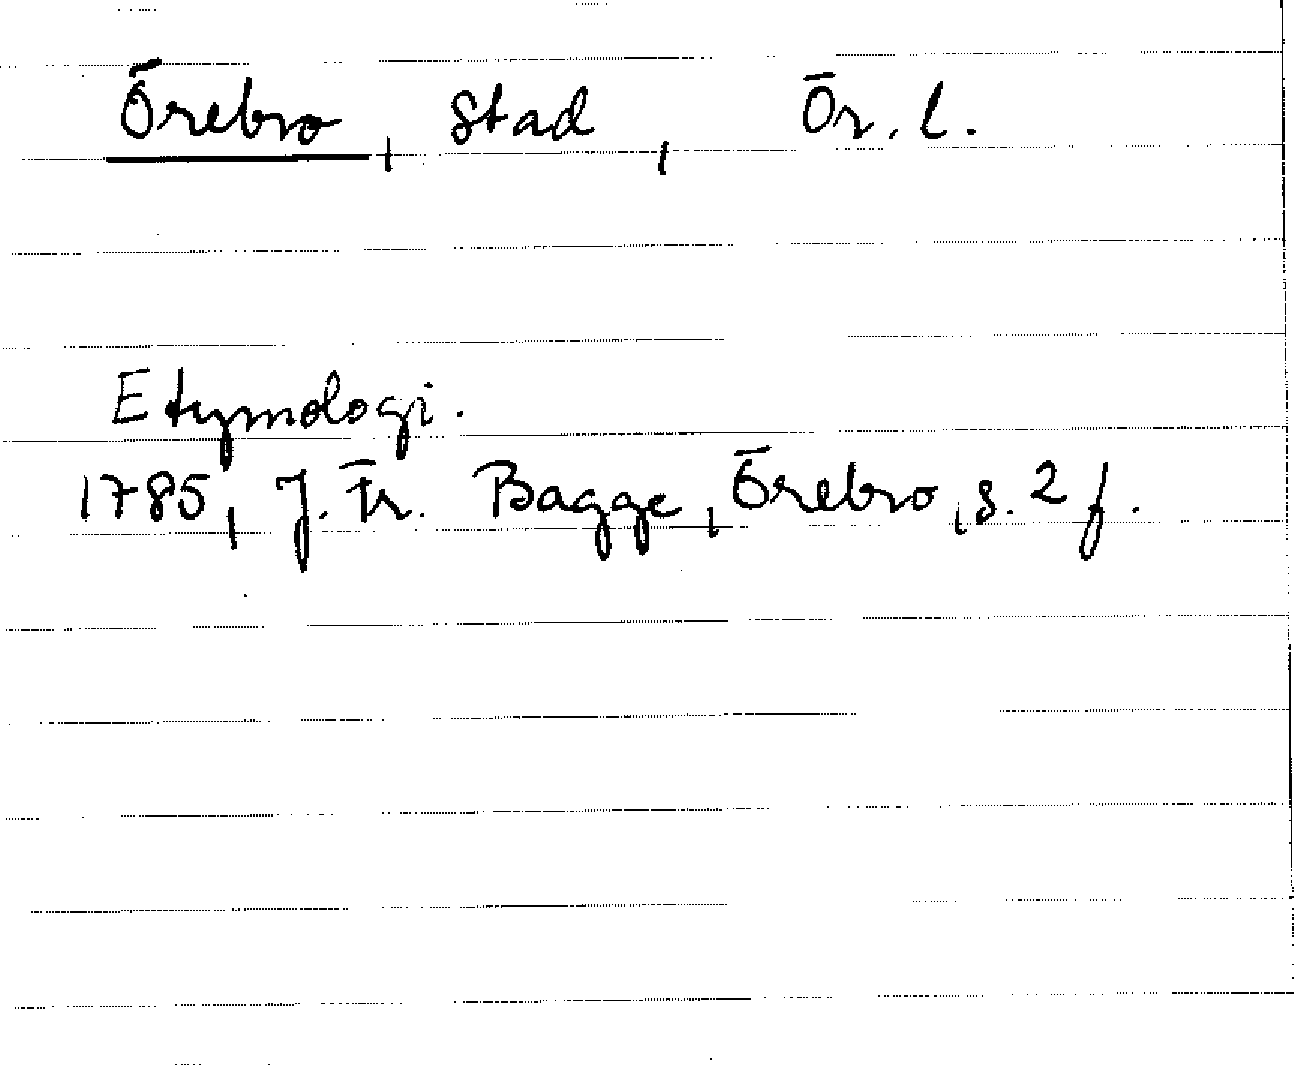 Örebro, stad, Ör. l.
Etymologi.
1785, J. Fr. Bagge, Örebro, s. 2 f.